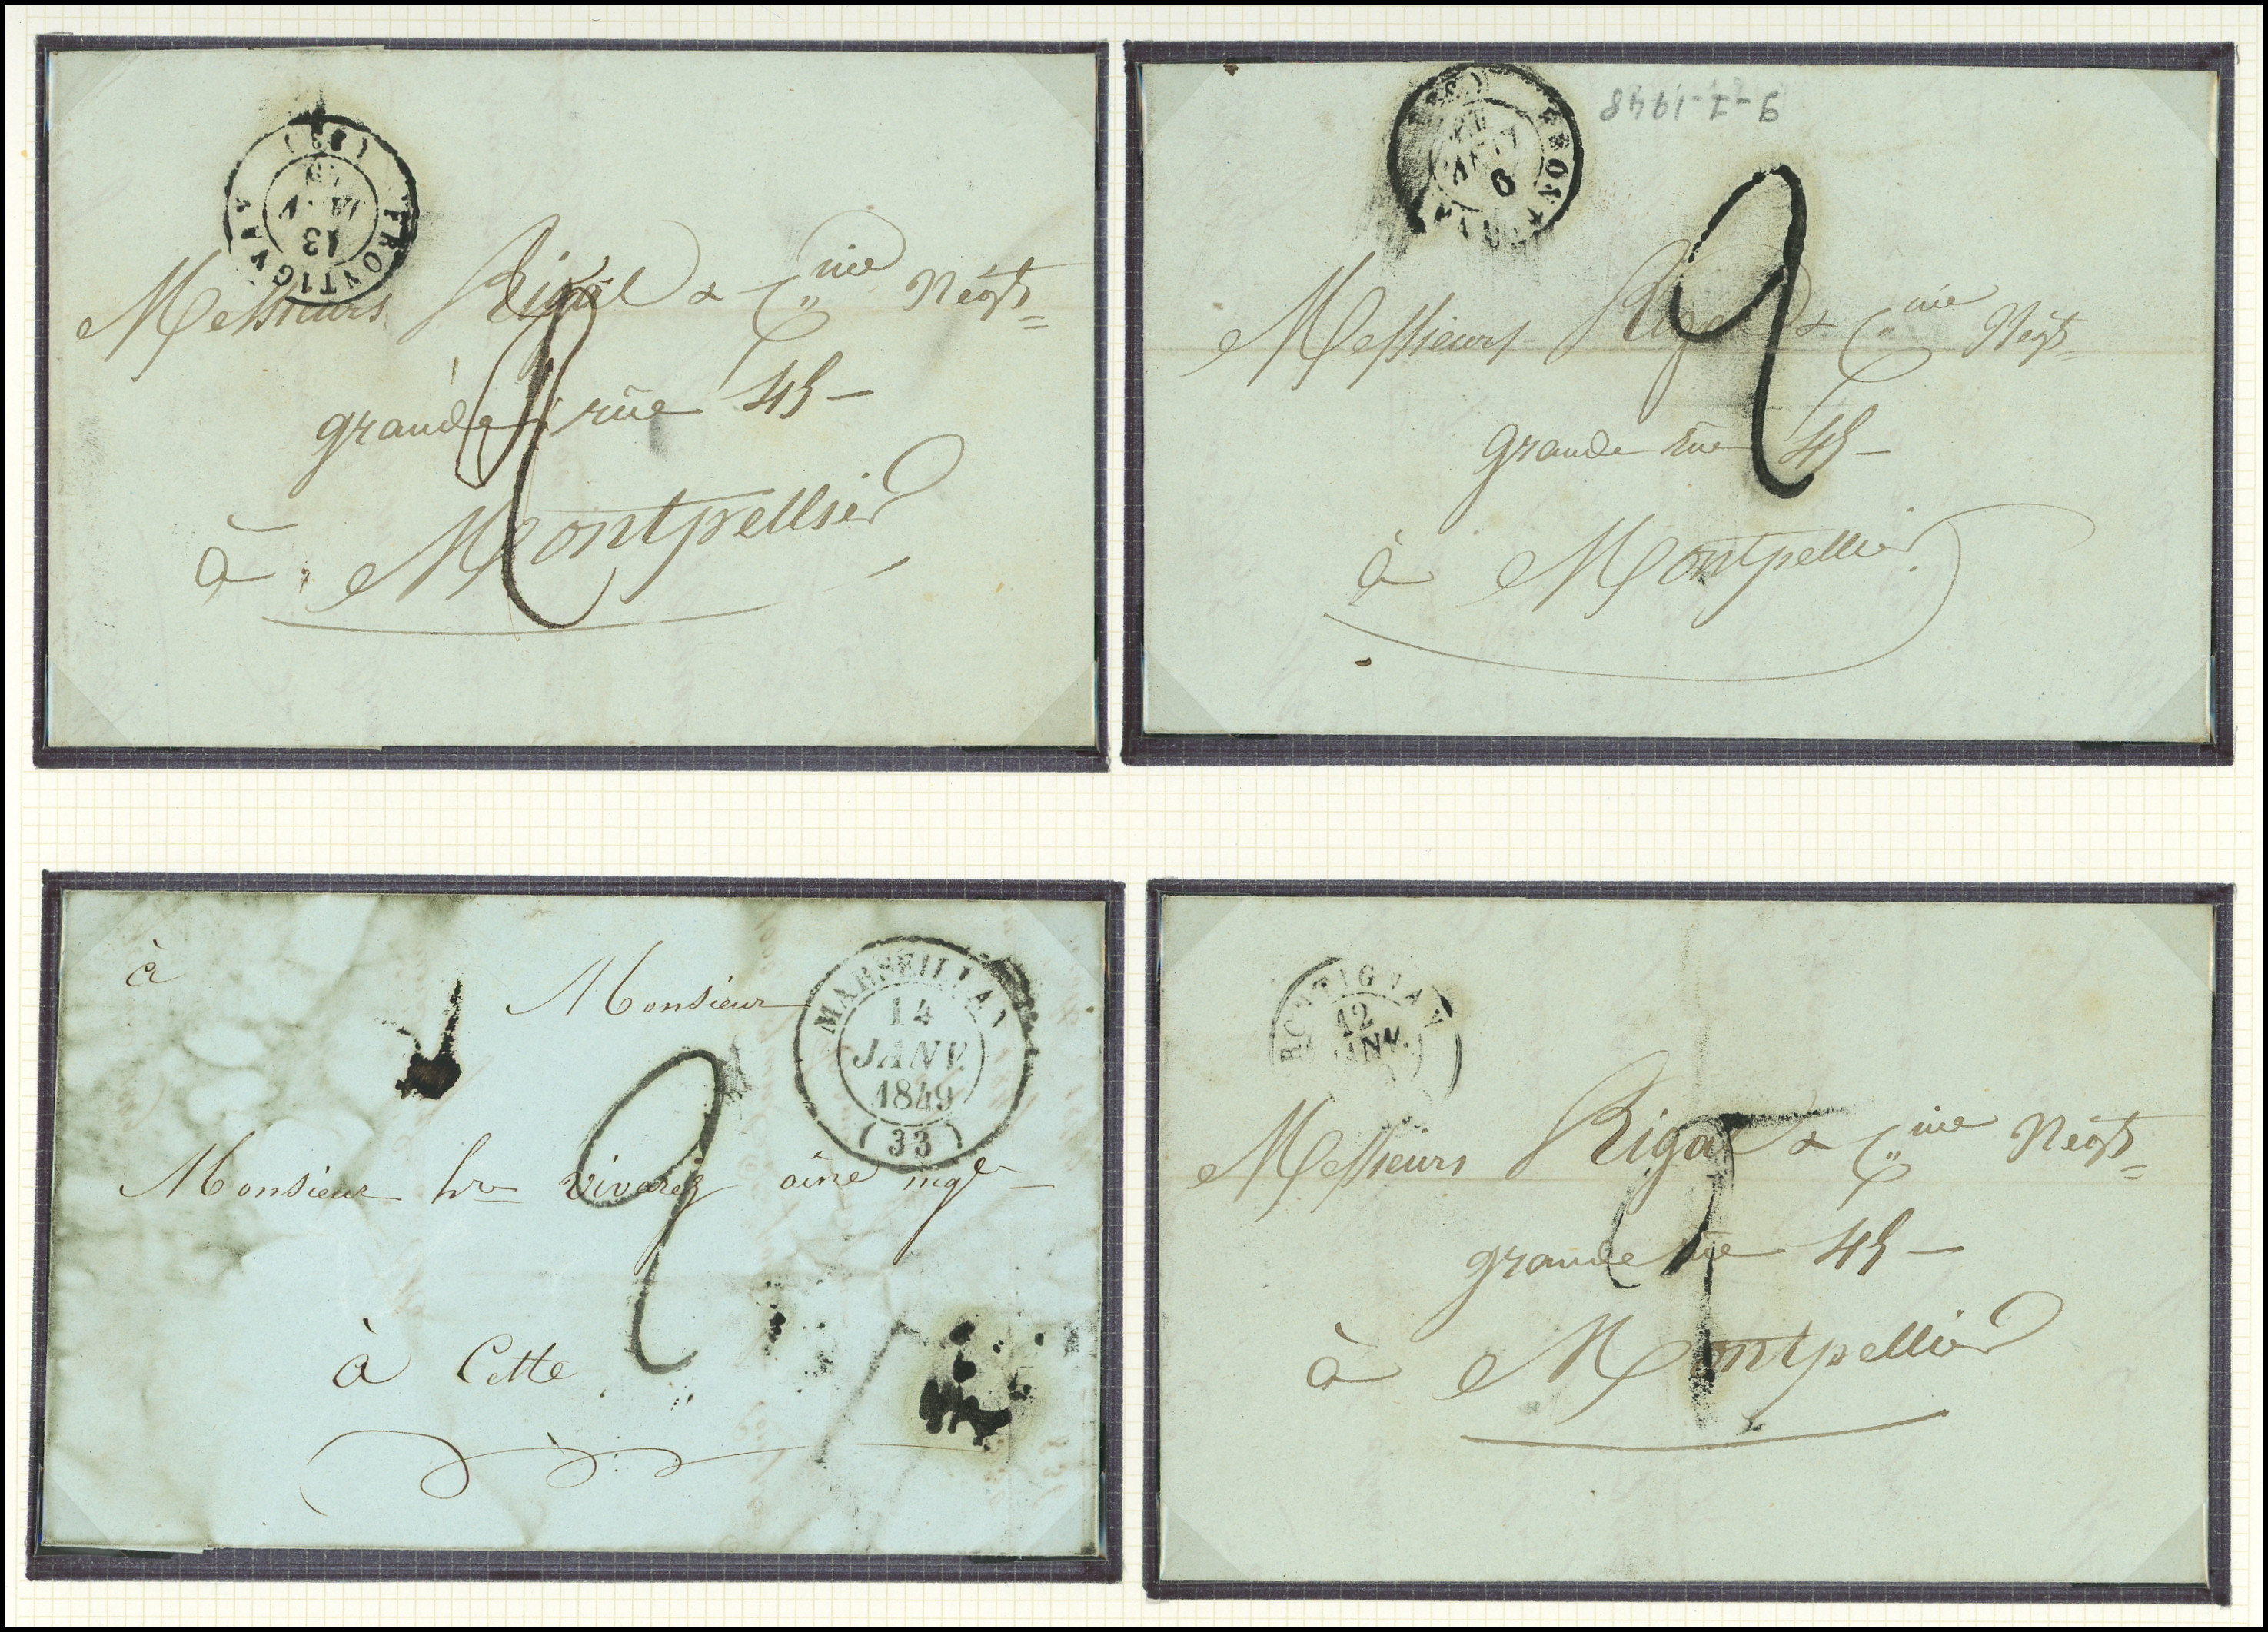 FRONTIGNAN
13
JANV
(33)
Messieurs Rigal & C,,nie Négts
grande rüe 45 –
à Montpellier
2
9-1-1948
9
JANV
Messieurs Rigal & C,,nie Négts
grande rue 45 –
à Montpellier
2
MARSEILLAN
14
JANV.
1849
(33)
à Monsieur
Monsieur hri Vivarez ainé negt
à Cette
2
RONTIGNAN
12
JANV.
Messieurs Rigal & C,,nie Négts
grande rüe 45 –
à Montpellier
2